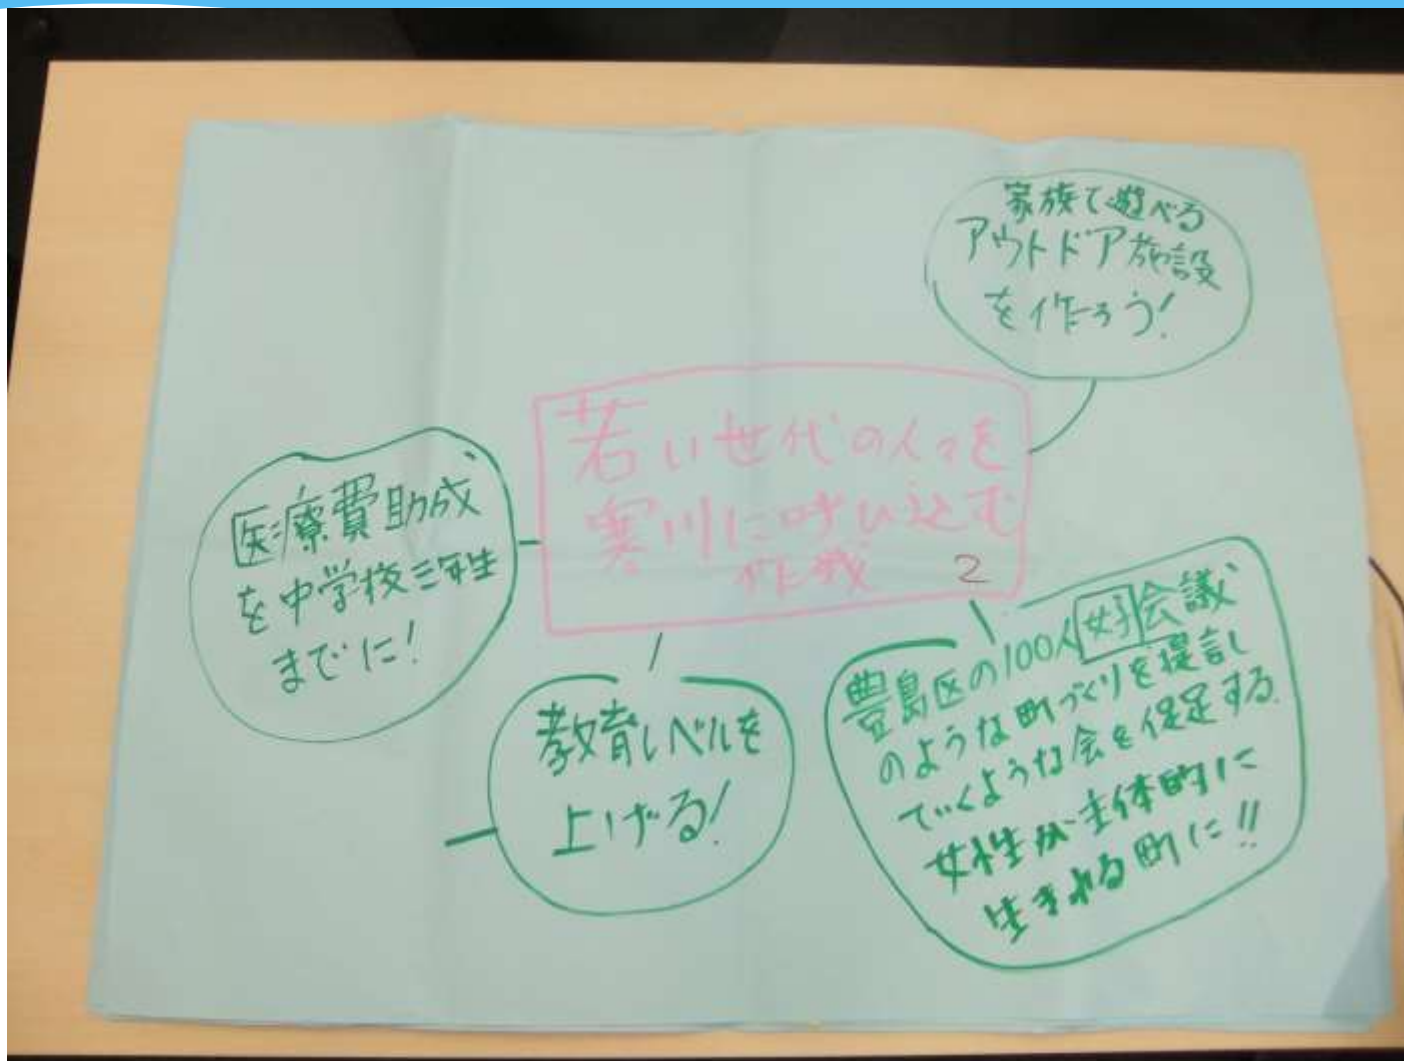 家族で遊べる
アウトドア施設
を作ろう!
若い世代の人々を
寒川に呼び込む
作戦 2
医療費助成
を中学校三年生
までに!
教育レベルを
上げる!
豊島区の100人女子会議
のような町づくりを提言し
ていくような会を促足する
女性が主体的に
生きれる町に!!